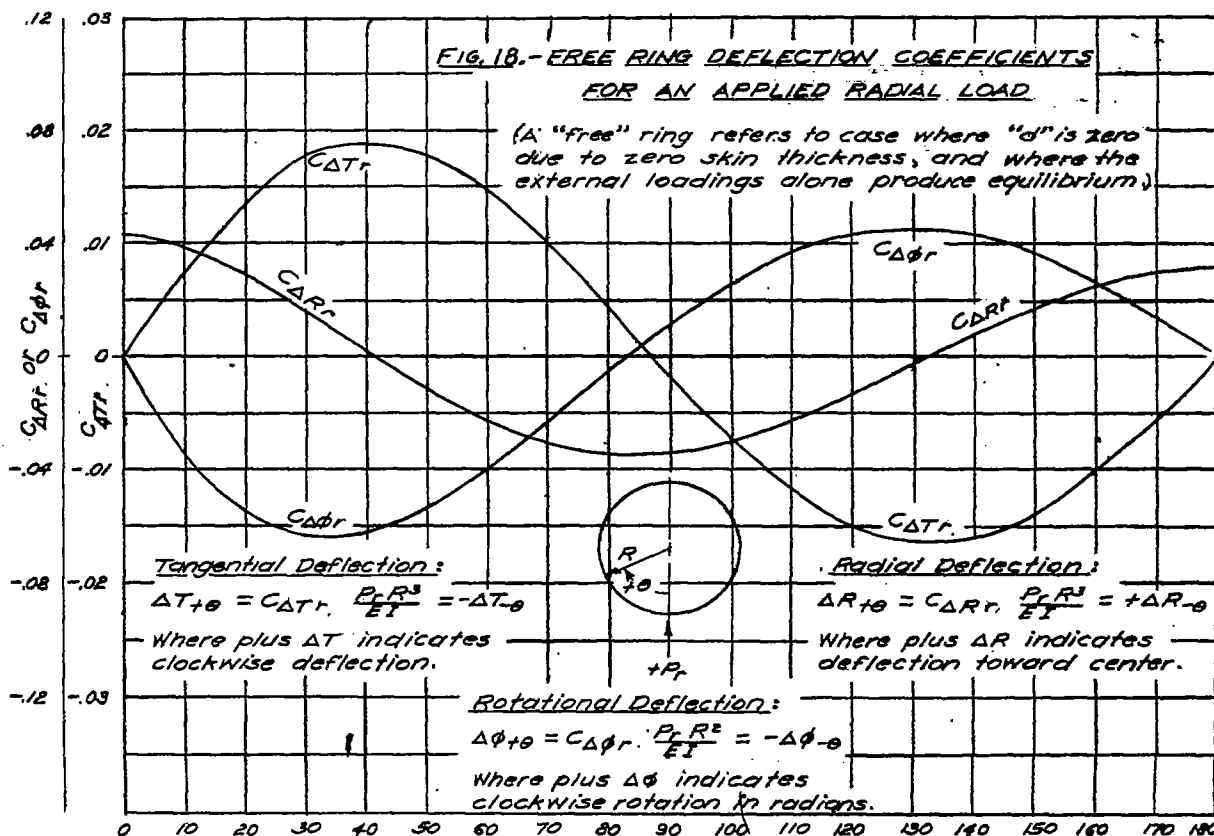 .12 .03
FIG. 18.-FREE RING DEFLECTION COEFFICIENTS
FOR AN APPLIED RADIAL LOAD
(A "free" ring refers to case where "d" is zero
due to zero skin thickness, and where the
external loadings alone produce equilibrium.)
.08 .02
.04 .01
0 0
-.04 -.01
-.08 -.02
-.12 -.03
C∆Rr. or C∆φr
C∆Tr.
C∆Tr
C∆Rr
C∆φr
C∆φr
C∆Rr
C∆Tr.
R
+θ
+Pr
Tangential Deflection:
∆T+θ = C∆Tr. PrR³/EI = -∆T-θ
Where plus ∆T indicates
clockwise deflection.
Radial Deflection:
∆R+θ = C∆Rr. PrR³/EI = +∆R-θ
Where plus ∆R indicates
deflection toward center.
Rotational Deflection:
∆φ+θ = C∆φr. PrR²/EI = -∆φ-θ
Where plus ∆φ indicates
clockwise rotation in radians.
0 10 20 30 40 50 60 70 80 90 100 110 120 130 140 150 160 170 180